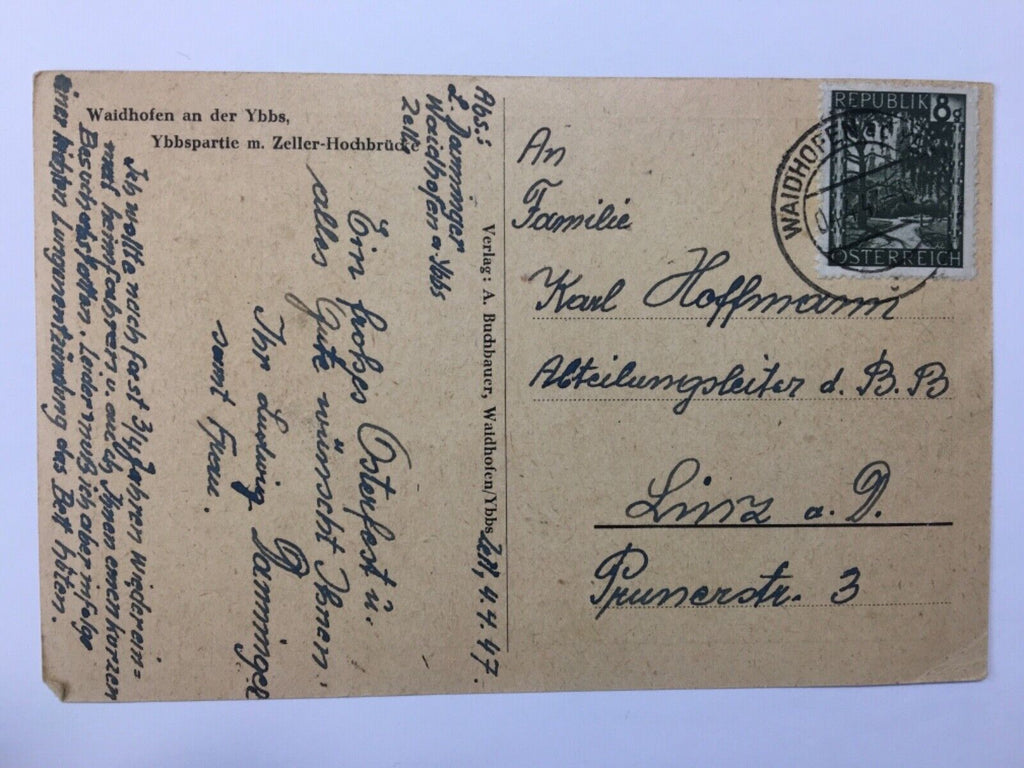 Waidhofen an der Ybbs,
Ybbspartie m. Zeller-Hochbrücke
Abs.:
L. Damminger
Waidhofen a. Ybbs
Zell
Zell, 4.4.47.
Ein frohes Osterfest u.
alles Gute wünscht Ihnen
Ihr Ludwig Damminger
samt Frau.
Ich wollte nach fast 3/4 Jahren wieder ein=
mal heimfahren u. auch Ihnen einen kurzen
Besuch abstatten. Leider muß ich aber infolge
einer leichten Lungenentzündung das Bett hüten.
Verlag: A. Buchbauer, Waidhofen/Ybbs
An
Familie
Karl Hoffmann
Abteilungsleiter d. B. B
Linz a. D.
Prunerstr. 3
REPUBLIK 8g
ÖSTERREICH
WAIDHOFEN